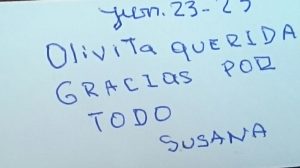 Jun. 23-25
OlivITa QUERIDA
GRACIas POR
TODO
SUSANA